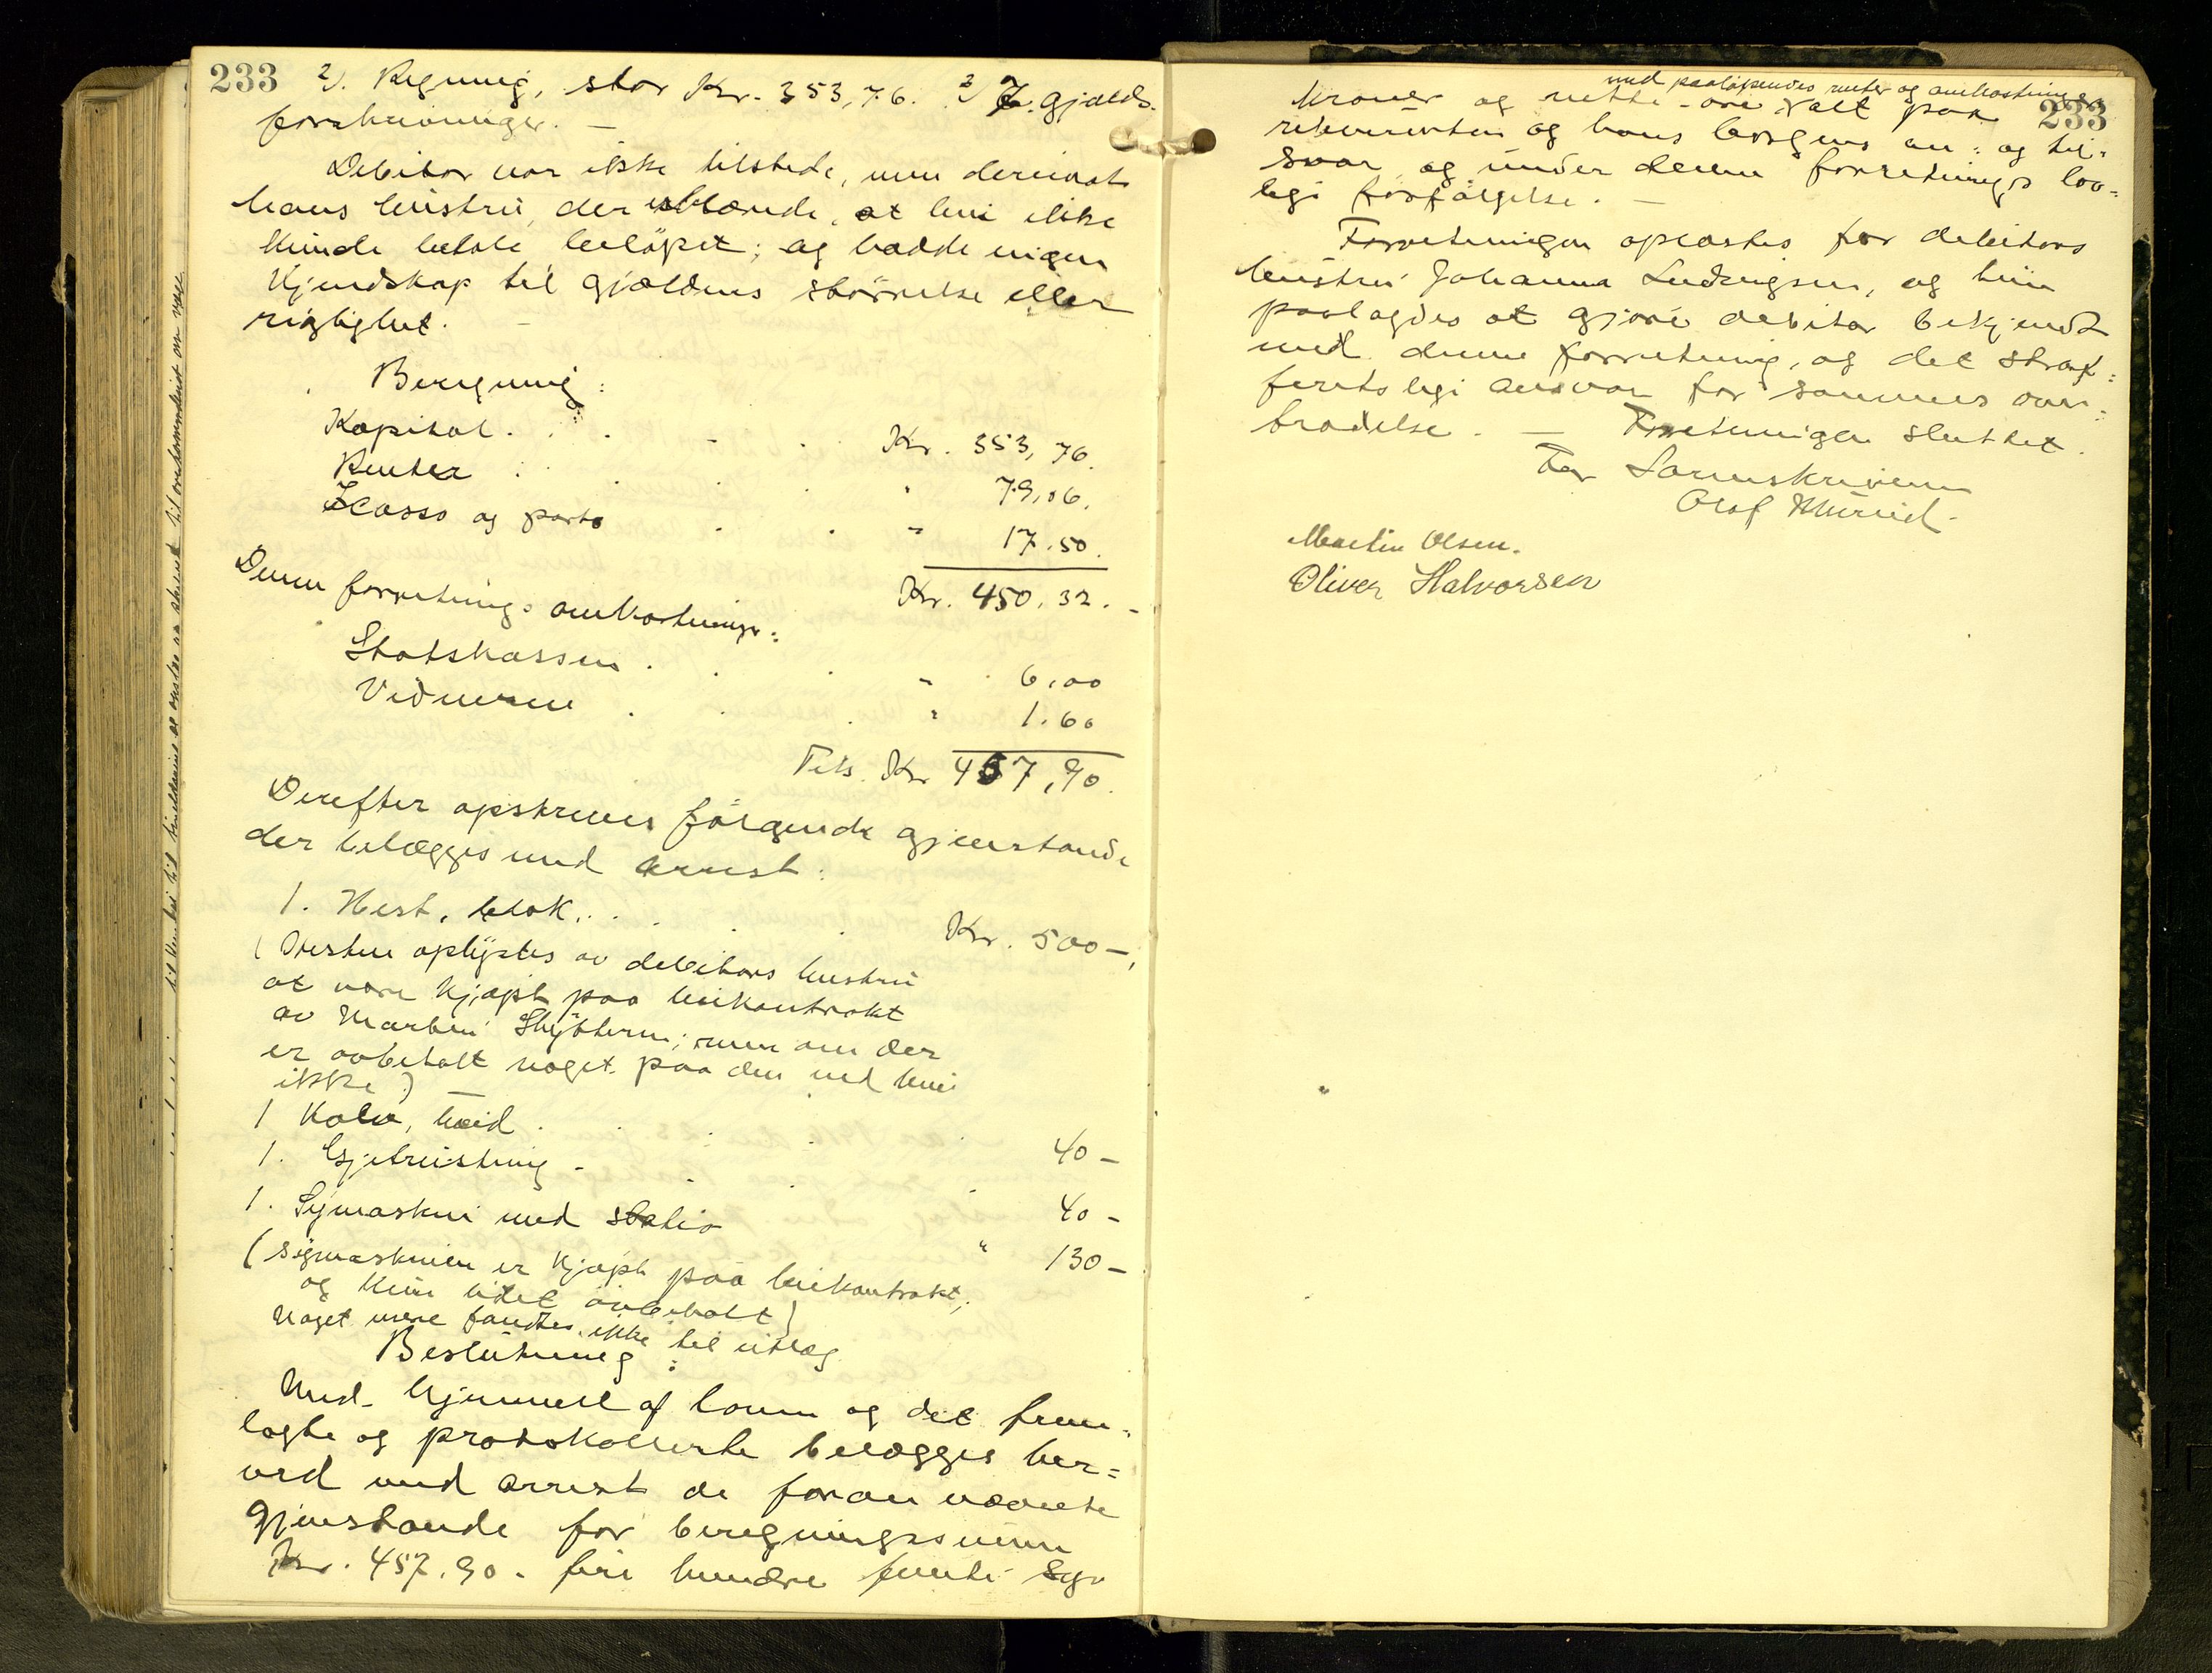 233
2). Regning, stor Kr. 353,76. 3) 7 gjælds-
forskrivninger. —
Debitor var ikke tilstede, men derimot
hans hustru, der erklærede, at hun ikke
kunde betale beløpet; og hadde ingen
kjendskap til gjældens størrelse eller
rigtighet. —
Beregning:
Kapital . . . . Kr. 353,76.
Renter . . . . " 79,06.
Incasso og porto . . " 17.50.
Kr. 450.32. -
Denne forretnings omkostninger:
Statskassen . . . " 6,00
Vidnerne . . . " 1.60
Tils. Kr 457,90.
Derefter opskreves følgende gjenstande
der belægges med arrest:
1. Hest, blak . . . . Kr. 500 —,
(Hesten oplystes av debitors hustru
at være kjøpt paa leiekontrakt
av Martin; men om der
er avbetalt noget paa den ved hun
ikke) —
1 Kalv, kvid . . . . 40 —
1. Gjetrustning - . . . 40 -
1. Symaskin med stativ " 130 —
(Symaskinen er kjøpt paa leiekontrakt;
og kun lidet avbetalt)
Noget mere fandtes ikke til utlæg
Beslutning:
Med hjemmel af loven og det frem-
lagte og protokollerte belægges her=
ved med arrest de foran nævnte
gjenstande for beregningssummen
Kr. 457.90 - fire hundre femti syv
233
med paaløpendes renter og omkostninger
kroner og nitti øre, alt paa
rekvirenten og hans borgens an= og til=
svar og under denne forretnings lov=
lige forfølgelse. —
Forretningen oplæstes for debitors
hustru Johanna Ludvigsen, og hun
paalagdes at gjøre debitor bekjendt
med denne forretning, og det straf=
feretslige ansvar for sammes over=
trædelse. — Forretningen sluttet.
For Sorenskriveren
Olaf
Martin Olsen.
Oliver Halvorsen